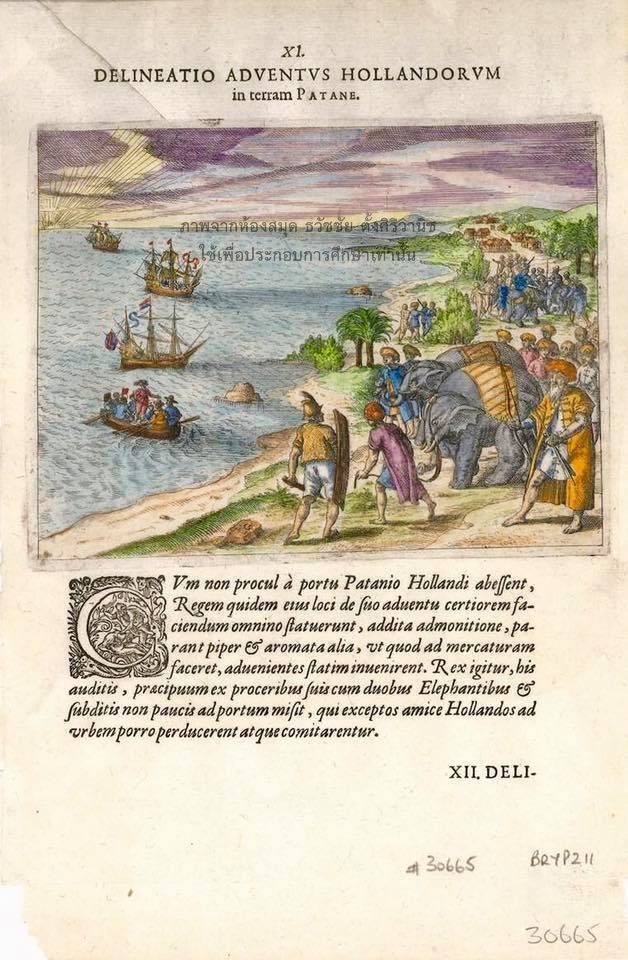 XI.
DELINEATIO ADVENTVS HOLLANDORVM
in terram PATANE.
ภาพจากห้องสมุด ธวัชชัย ตั้งศิริวานิช
ใช้เพื่อประกอบการศึกษาเท่านั้น
CVm non procul à portu Patanio Hollandi abeſſent,
Regem quidem eius loci de ſuo aduentu certiorem fa-
ciendum omnino ſtatuerunt, addita admonitione, pa-
rant piper & aromata alia, vt quod ad mercaturam
faceret, aduenientes ſtatim inuenirent. Rex igitur, his
auditis, præcipuum ex proceribus ſuis cum duobus Elephantibus &
ſubditis non paucis ad portum miſit, qui exceptos amice Hollandos ad
vrbem porro perducerent atque comitarentur.
XII. DELI-
# 30665
BRYP211
30665